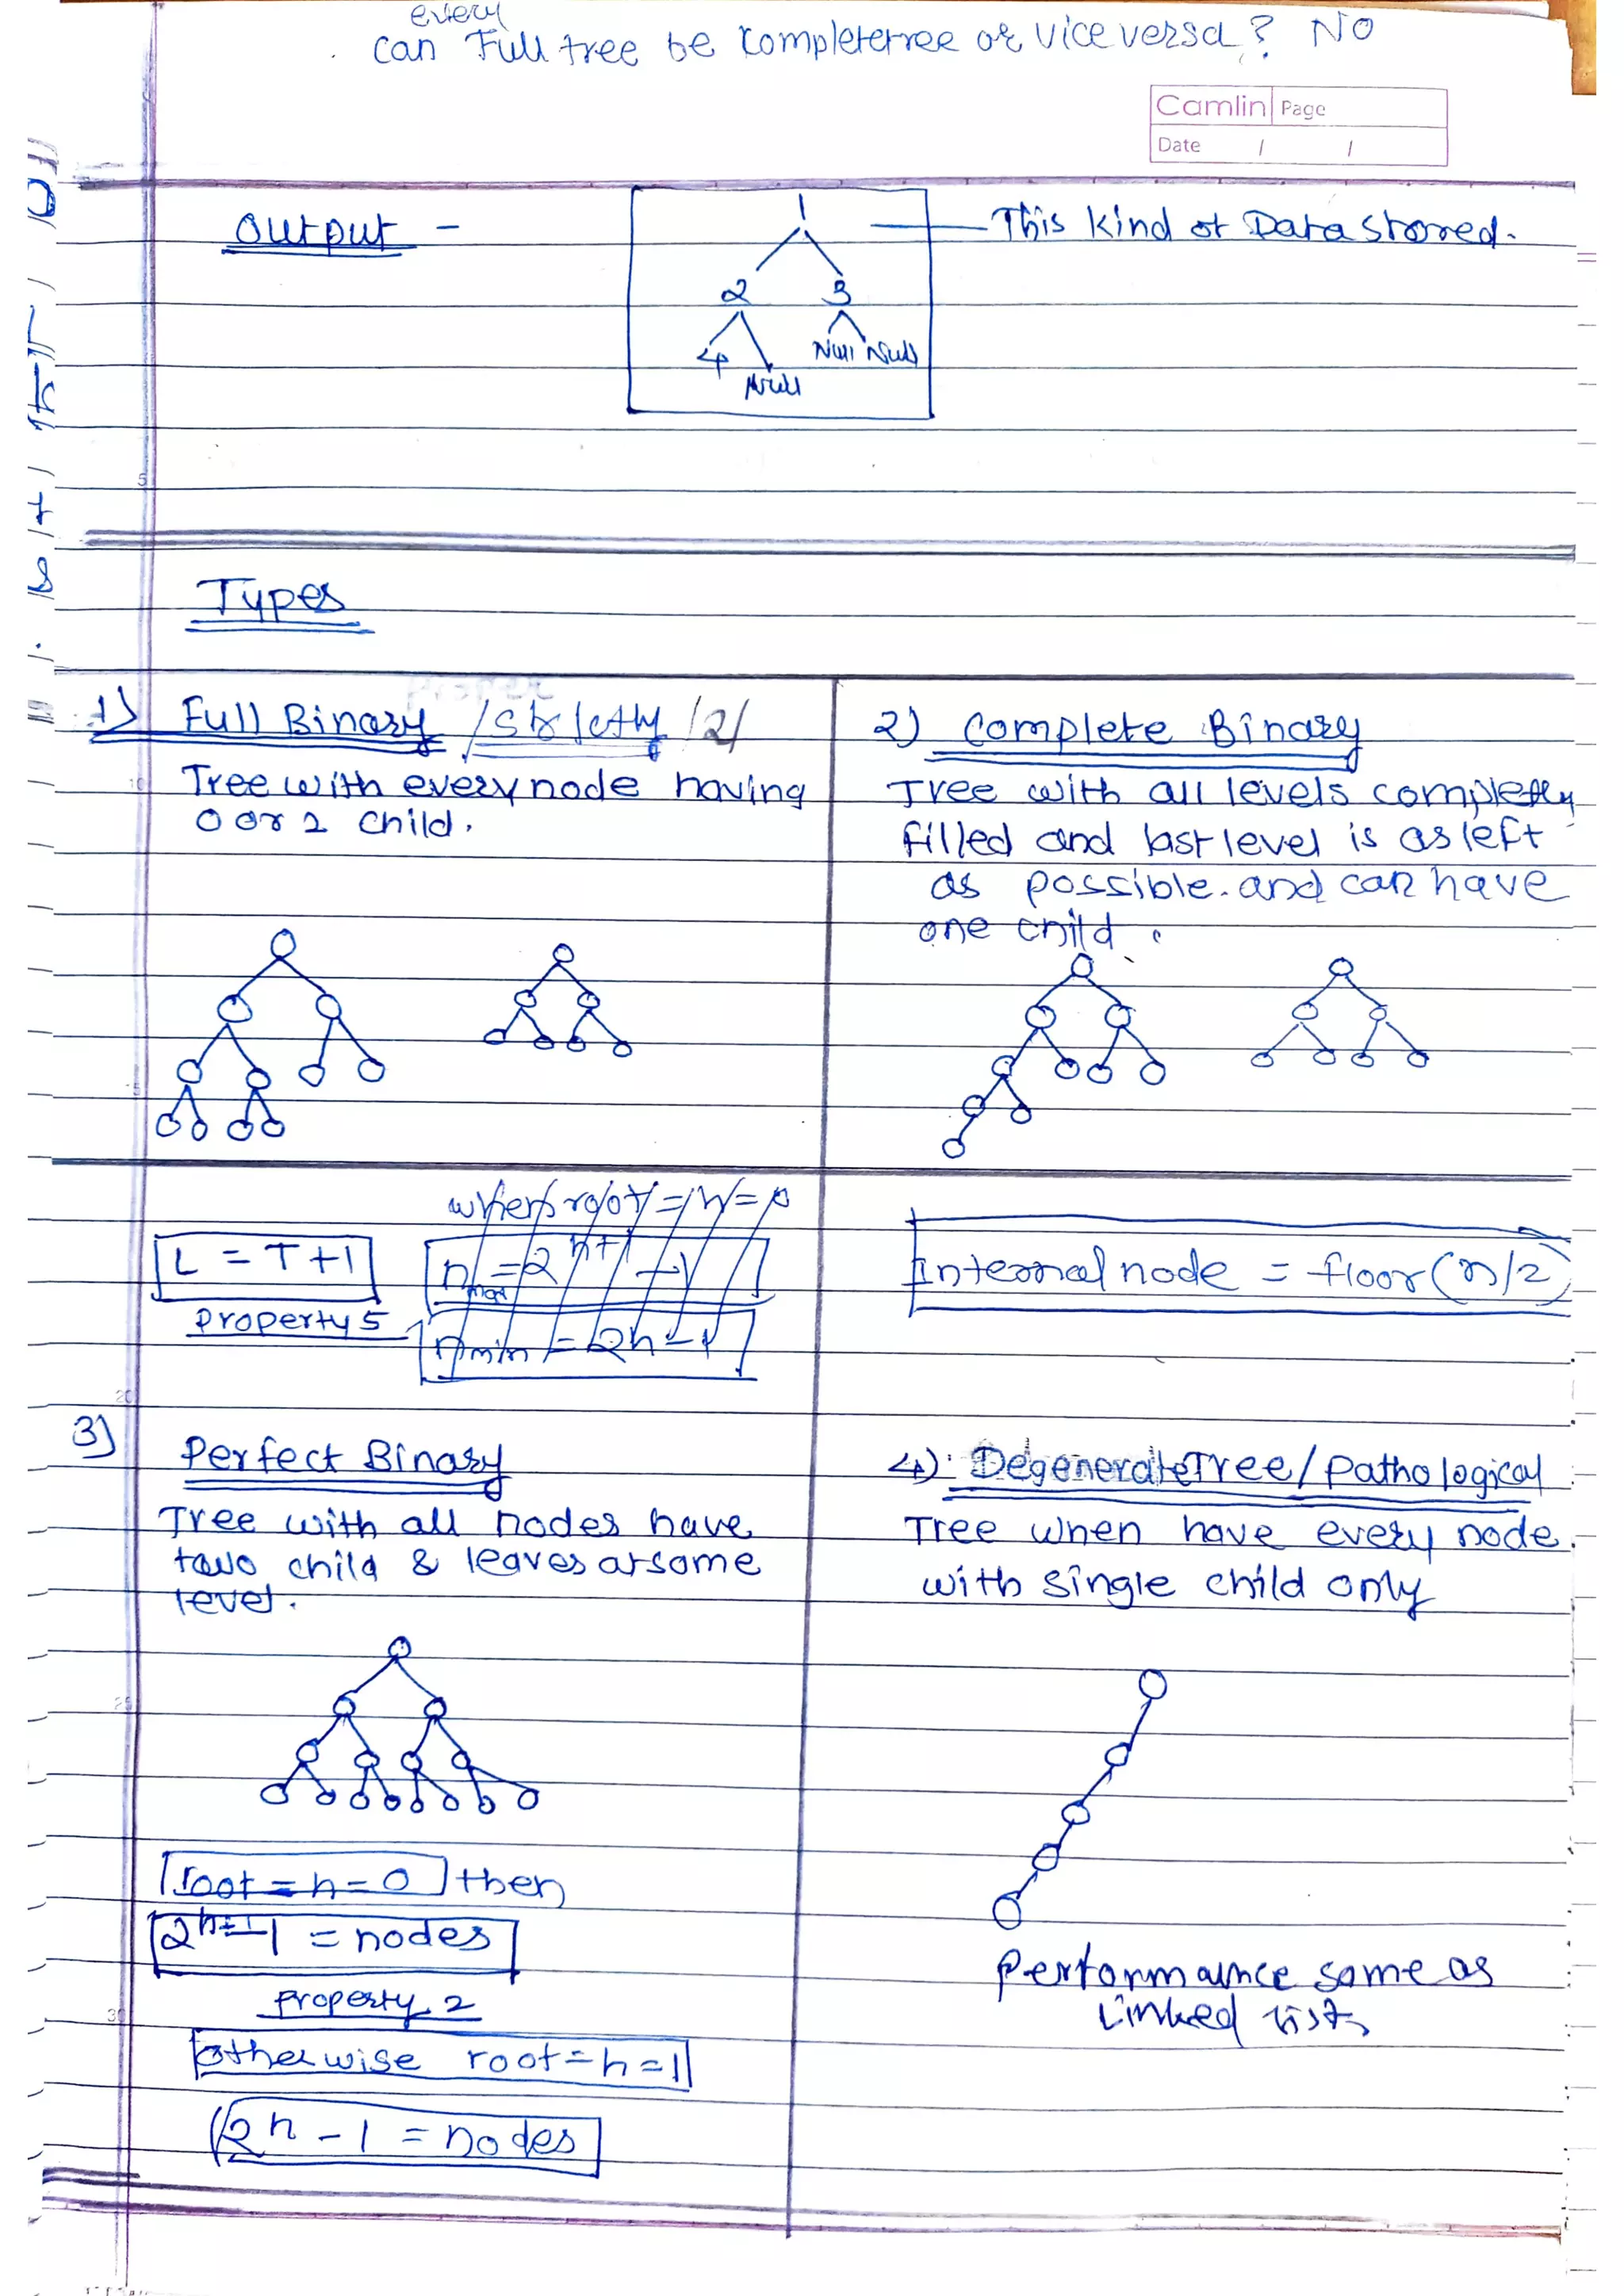 every
can Full tree be completetree or vice versa? NO
Camlin Page
Date / /
Output -
1
This kind of Data stored.
2 3
4 Null Null
Null
Types
1) Full Binary / Strictly /2/
Tree with every node having
0 or 2 child.
2) Complete Binary
Tree with all levels completly
filled and last level is as left
as possible. and can have
one child.
when root = h = 0
L = T + 1
n max = 2^h+1 - 1
Property 5
n min = 2h - 1
Internal node = floor(n/2)
3) Perfect Binary
Tree with all nodes have
two child & leaves at same
level.
root = h = 0 then
2^h+1 - 1 = nodes
Property 2
otherwise root = h = 1
2^h - 1 = nodes
4) Degenerate Tree / Pathological
Tree when have every node
with single child only
Performance same as
Linked list